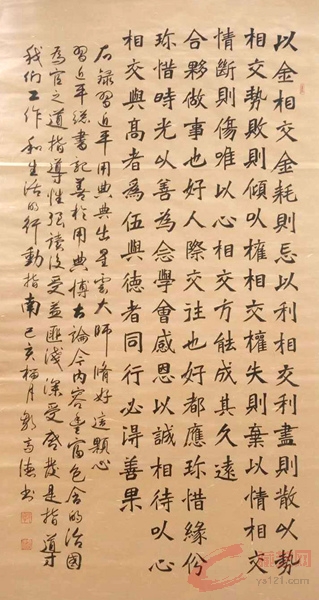 以金相交金耗則忘以利相交利盡則散以勢
相交勢敗則傾以權相交權失則棄以情相交
情斷則傷唯以心相交方能成其久遠
合夥做事也好人際交往也好都應珎惜緣份
珎惜時光以善為念學會感恩以誠相待以心
相交與高者為伍與德者同行必得善果
右錄習近平用典典出星雲大師脩好這顆心
習近平總書記善於用典博古論今内容豐富包含的治國
為官之道指導性强讀後受益匪淺深受啓發是指導
我们工作和生活的行動指南己亥 月 書
ya121.com